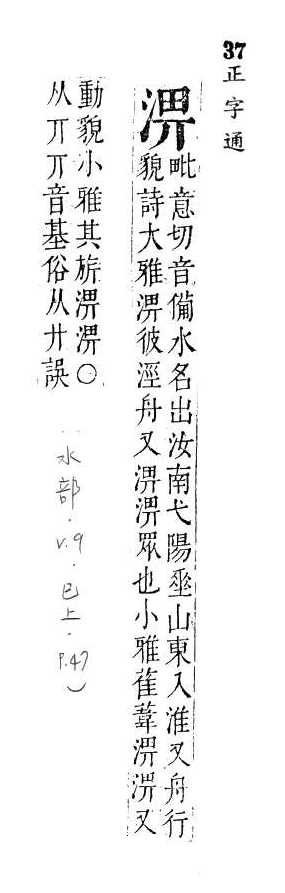 37
正字通
淠
毗意切音僃水名出汝南弋陽埀山東入淮又舟行
貌詩大雅淠彼涇舟又淠淠眾也小雅萑葦淠淠又
動貌小雅其旂淠淠○
从丌丌音基俗从廾誤
水部．v.9．巳上．P.47）